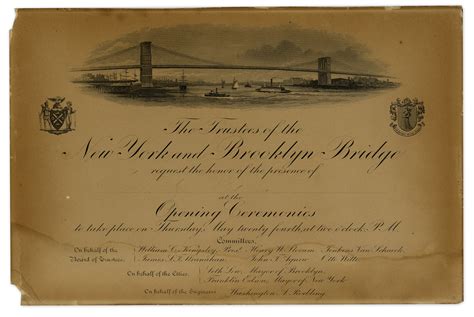 The Trustees of the
New York and Brooklyn Bridge
request the honor of the presence of
at the
Opening Ceremonies
to take place on Thursday, May twenty fourth, at two o'clock P.M.
Committees.
On behalf of the Board of Trustees, William C. Kingsley, Prest. Henry W. Slocum Jenkins Van Schaick
James S.T. Stranahan John T. Agnew Otto Witte
On behalf of the Cities, Seth Low, Mayor of Brooklyn
Franklin Edson, Mayor of New York
On behalf of the Engineers Washington A. Roebling